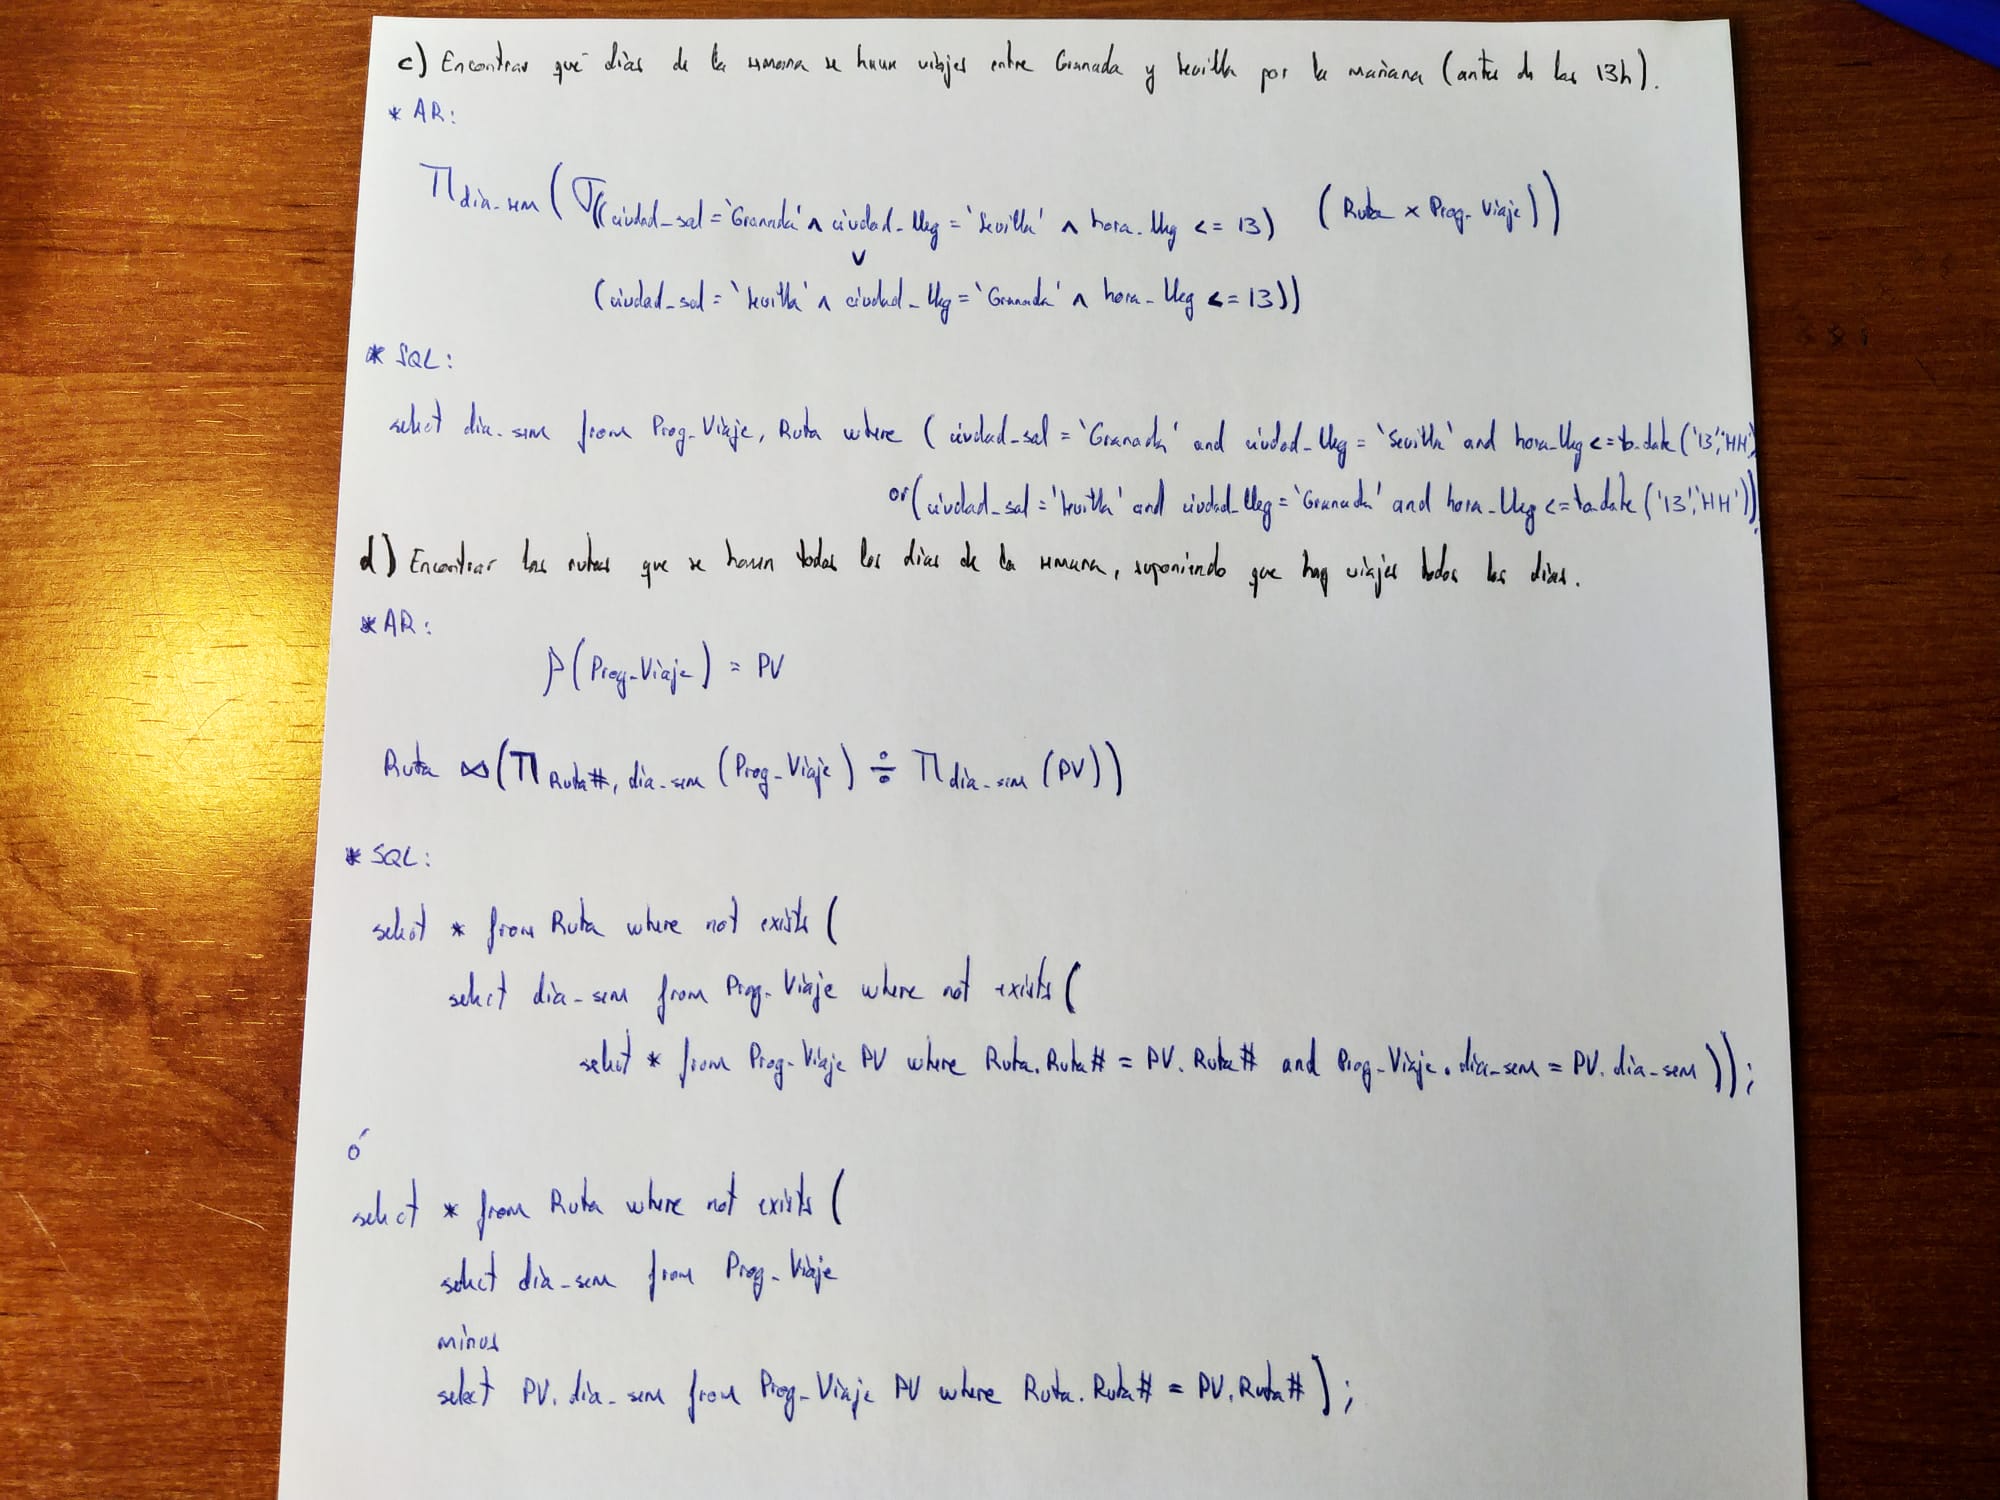 c) Encontrar qué días de la semana se hacen viajes entre Granada y Sevilla por la mañana (antes de las 13h).
* AR:
Π dia_sem (σ((ciudad_sal = 'Granada' ∧ ciudad_lleg = 'Sevilla' ∧ hora_lleg <= 13) (Ruta x Prog_Viaje))
∨
(ciudad_sal = 'Sevilla' ∧ ciudad_lleg = 'Granada' ∧ hora_lleg <= 13))
* SQL:
select dia_sem from Prog_Viaje, Ruta where (ciudad_sal = 'Granada' and ciudad_lleg = 'Sevilla' and hora_lleg <= to_date('13','HH')
or (ciudad_sal = 'Sevilla' and ciudad_lleg = 'Granada' and hora_lleg <= to_date('13','HH'));
d) Encontrar las rutas que se hacen todos los días de la semana, suponiendo que hay viajes todos los días.
* AR:
ρ(Prog_Viaje) = PV
Ruta ⋈ (Π Ruta#, dia_sem (Prog_Viaje) ÷ Π dia_sem (PV))
* SQL:
select * from Ruta where not exists (
select dia_sem from Prog_Viaje where not exists (
select * from Prog_Viaje PV where Ruta.Ruta# = PV.Ruta# and Prog_Viaje.dia_sem = PV.dia_sem));
ó
select * from Ruta where not exists (
select dia_sem from Prog_Viaje
minus
select PV.dia_sem from Prog_Viaje PV where Ruta.Ruta# = PV.Ruta#);